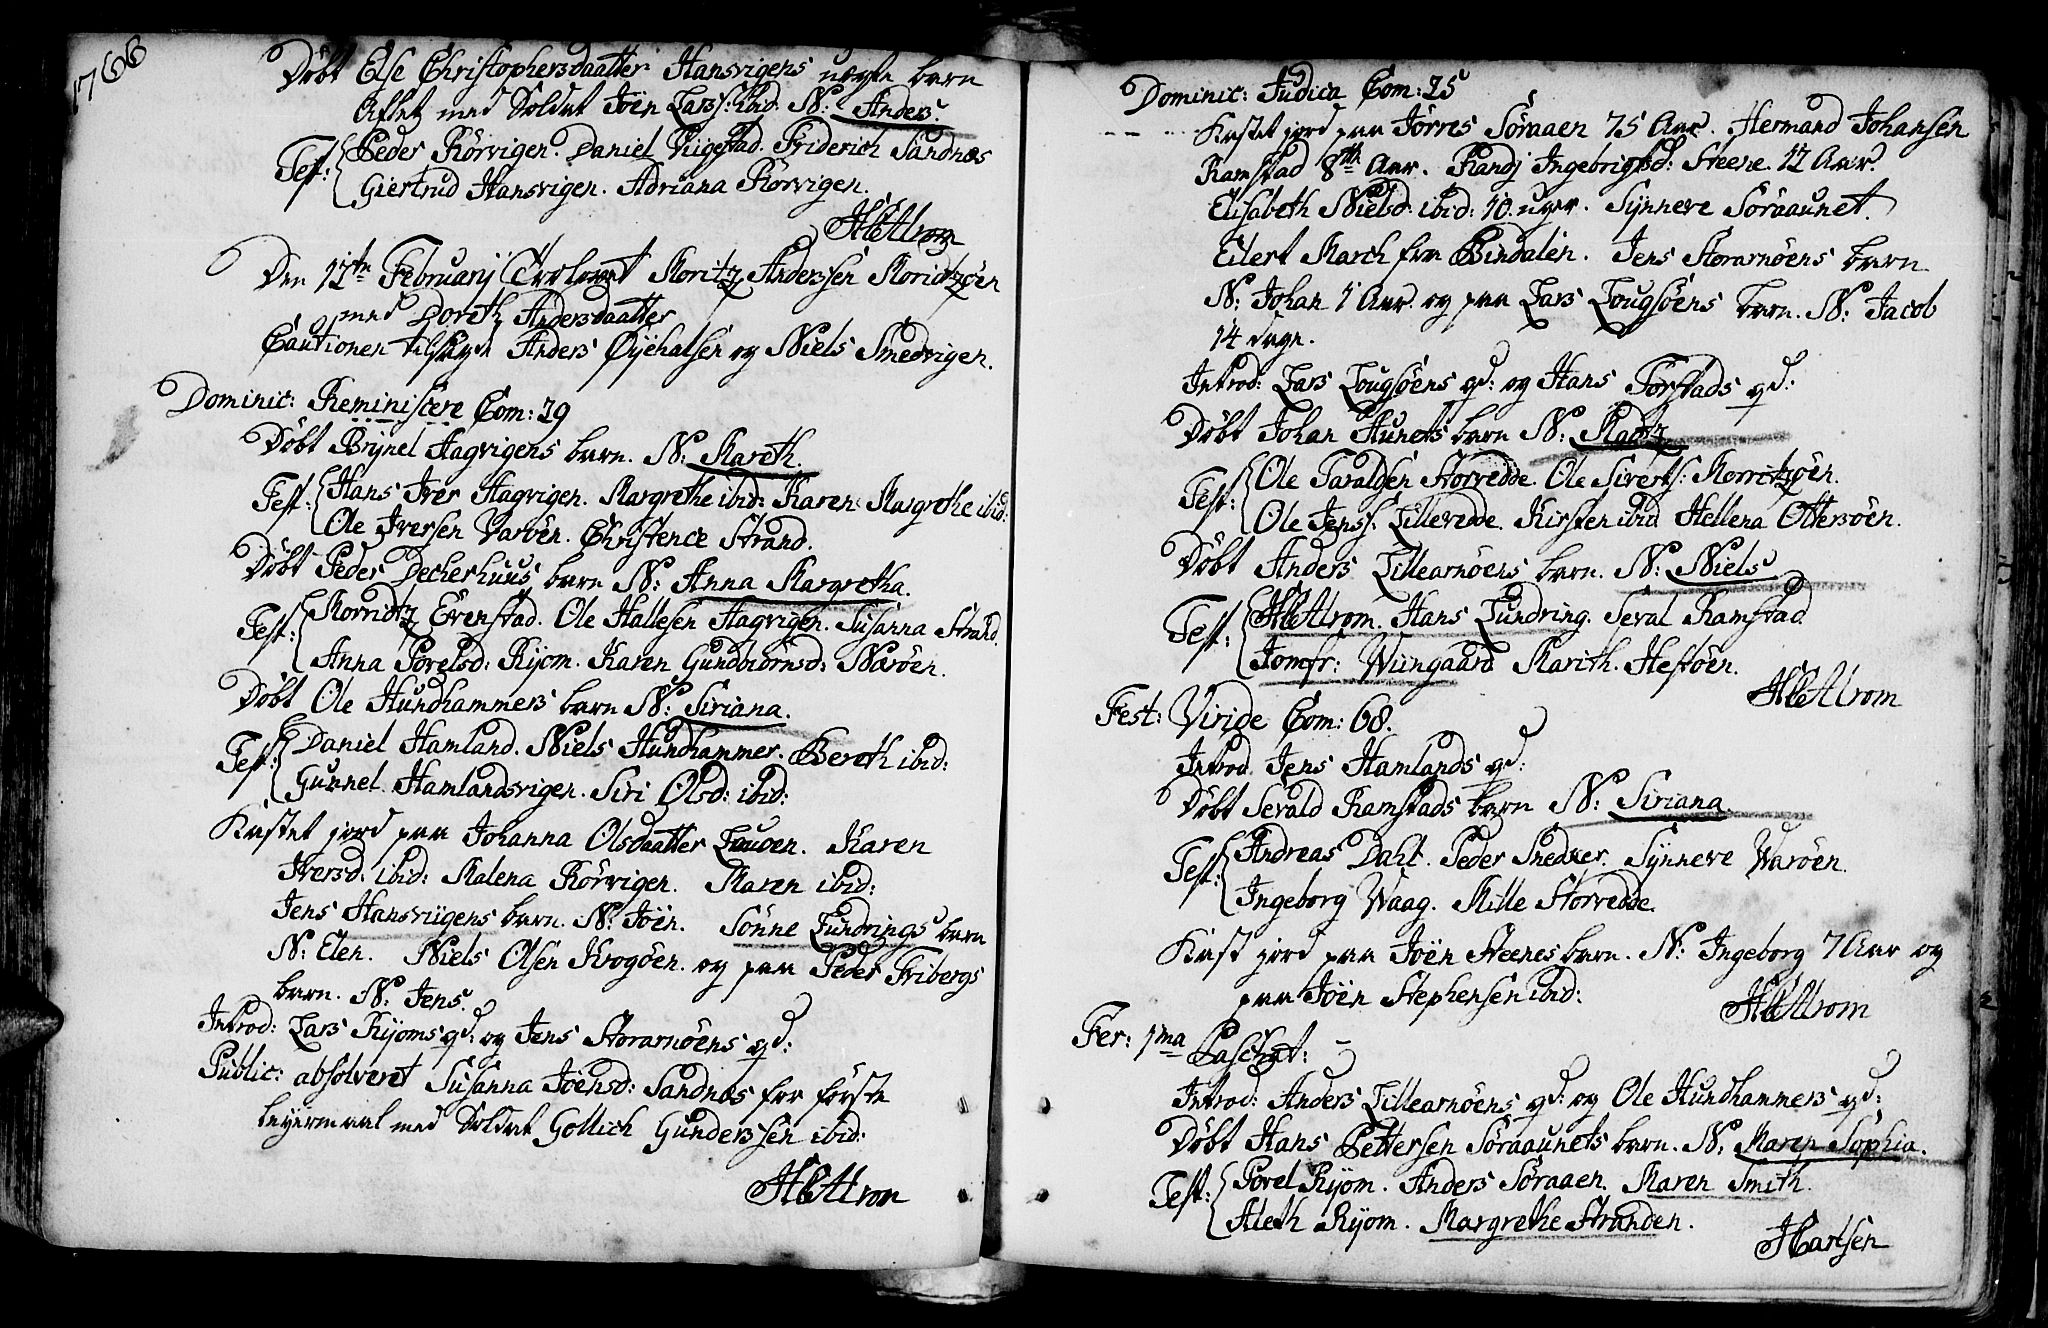 1766
Döbt Else Christophersdaatter Hansvigens uægte barn
Aflet med Soldat Joën Lars: ibid: N: Anders.
Test: Peder Rörvigen. Daniel Vügestad. Friderich Sandnæs
Giertrud Hansvigen. Adriana Rörvigen.
HCAtrom
Den 12te Februarij Trolovet Moritz Anderssen Moridtzöen
med Doreth Andersdaatter
Cautionen tilsagde Anders Öÿehalsen og Niels Smedvigen.
Dominic: Reminiscere Com: 29
Döbt Brÿnel Hagvigens barn. N: Mareth.
Test: Hans Iver Hagvigen. Margrethe ibid: Karen Margrethe ibid:
Ole Iversen Varöen. Christence Strand.
Döbt Peder Deckerhuus barn N: Anna Margretha.
Test: Morridtz Evenstad. Ole Hallesen Hagvigen. Susanna Strand.
Anna Povelsd: Rÿom. Karen Gundbiörnsd: Næröen.
Döbt Ole Hundhammers barn N: Siriana.
Test: Daniel Hamland. Niels Hundhammer. Bereth ibid:
Gunnel Hamlandsvigen. Siri Olsd: ibid:
Kastet jord paa Johanna Olsdaatter Lauven. Karen
Iversd: ibid: Malena Rörvigen. Maren ibid:
Jens Hansviigens barn. N: Joën. Sönne Lundrings barn
N: Elen. Niels Olsen Krogöen. og paa Peder Fribergs
barn. N: Jens.
Introd: Lars Rÿoms qd: og Jens Storarnöens qd:
Public: absolveret Susanna Joensd: Sandnæs for förste
leÿermaal med Soldat Gollich Gunderssen ibid:
HCAtrom
Dominic: Judica Com: 25
Kastet jord paa Jörres Söraaen 75 Aar. Hermand Johansen
Ramstad 8te Aar. Randj Ingebrigtsd: Steene. 12 Aar.
Elisabeth Nielsd: ibid: 10. uger. Sÿnneve Söraaunet.
Eilert March fra Bindalen. Jens Storarnöens barn
N: Johan 1 Aar. og paa Lars Lougsöens barn. N: Jacob
14 dage.
Introd: Lars Lougsöens qd: og Hans Torstads qd:
Döbt Johan Aunets barn N: Madtz
Test: Ole Taraldsen Storvedde. Ole Siverts: Morritzöen.
Ole Jenss: Lillevedde. Kirsten ibid Hellena Ottersöen.
Döbt Anders Lillearnöens barn. N: Niels
Test: HCAtrom. Hans Lundring. Seval Ramstad
Jomfr: Wiingaard Marith. Hestöen.
HCAtrom
Fest: Viride Com: 68.
Introd. Jens Hamlands qd:
Döbt Sevald Ramstads barn N: Siriana.
Test: Andreas Dahl. Peder Snedker. Sÿnneve Waröen.
Ingeborg Waag. Mille Storvedde.
Kast jord paa Joën Steenes barn. N: Ingeborg 7 Aar og
paa Joën Stephensen ibid:
HCAtrom
Fer: 1ma Paschat:
Introd: Anders Lillearnöens qd: og Ole Hundhammers qd:
Döbt Hans Pettersen Söraaunets barn. N: Maren Sophia.
Test: Povel Rÿom. Anders Söraaen. Maren Smith.
Aleth Rÿom. Margrethe Stranden.
HCarlsen